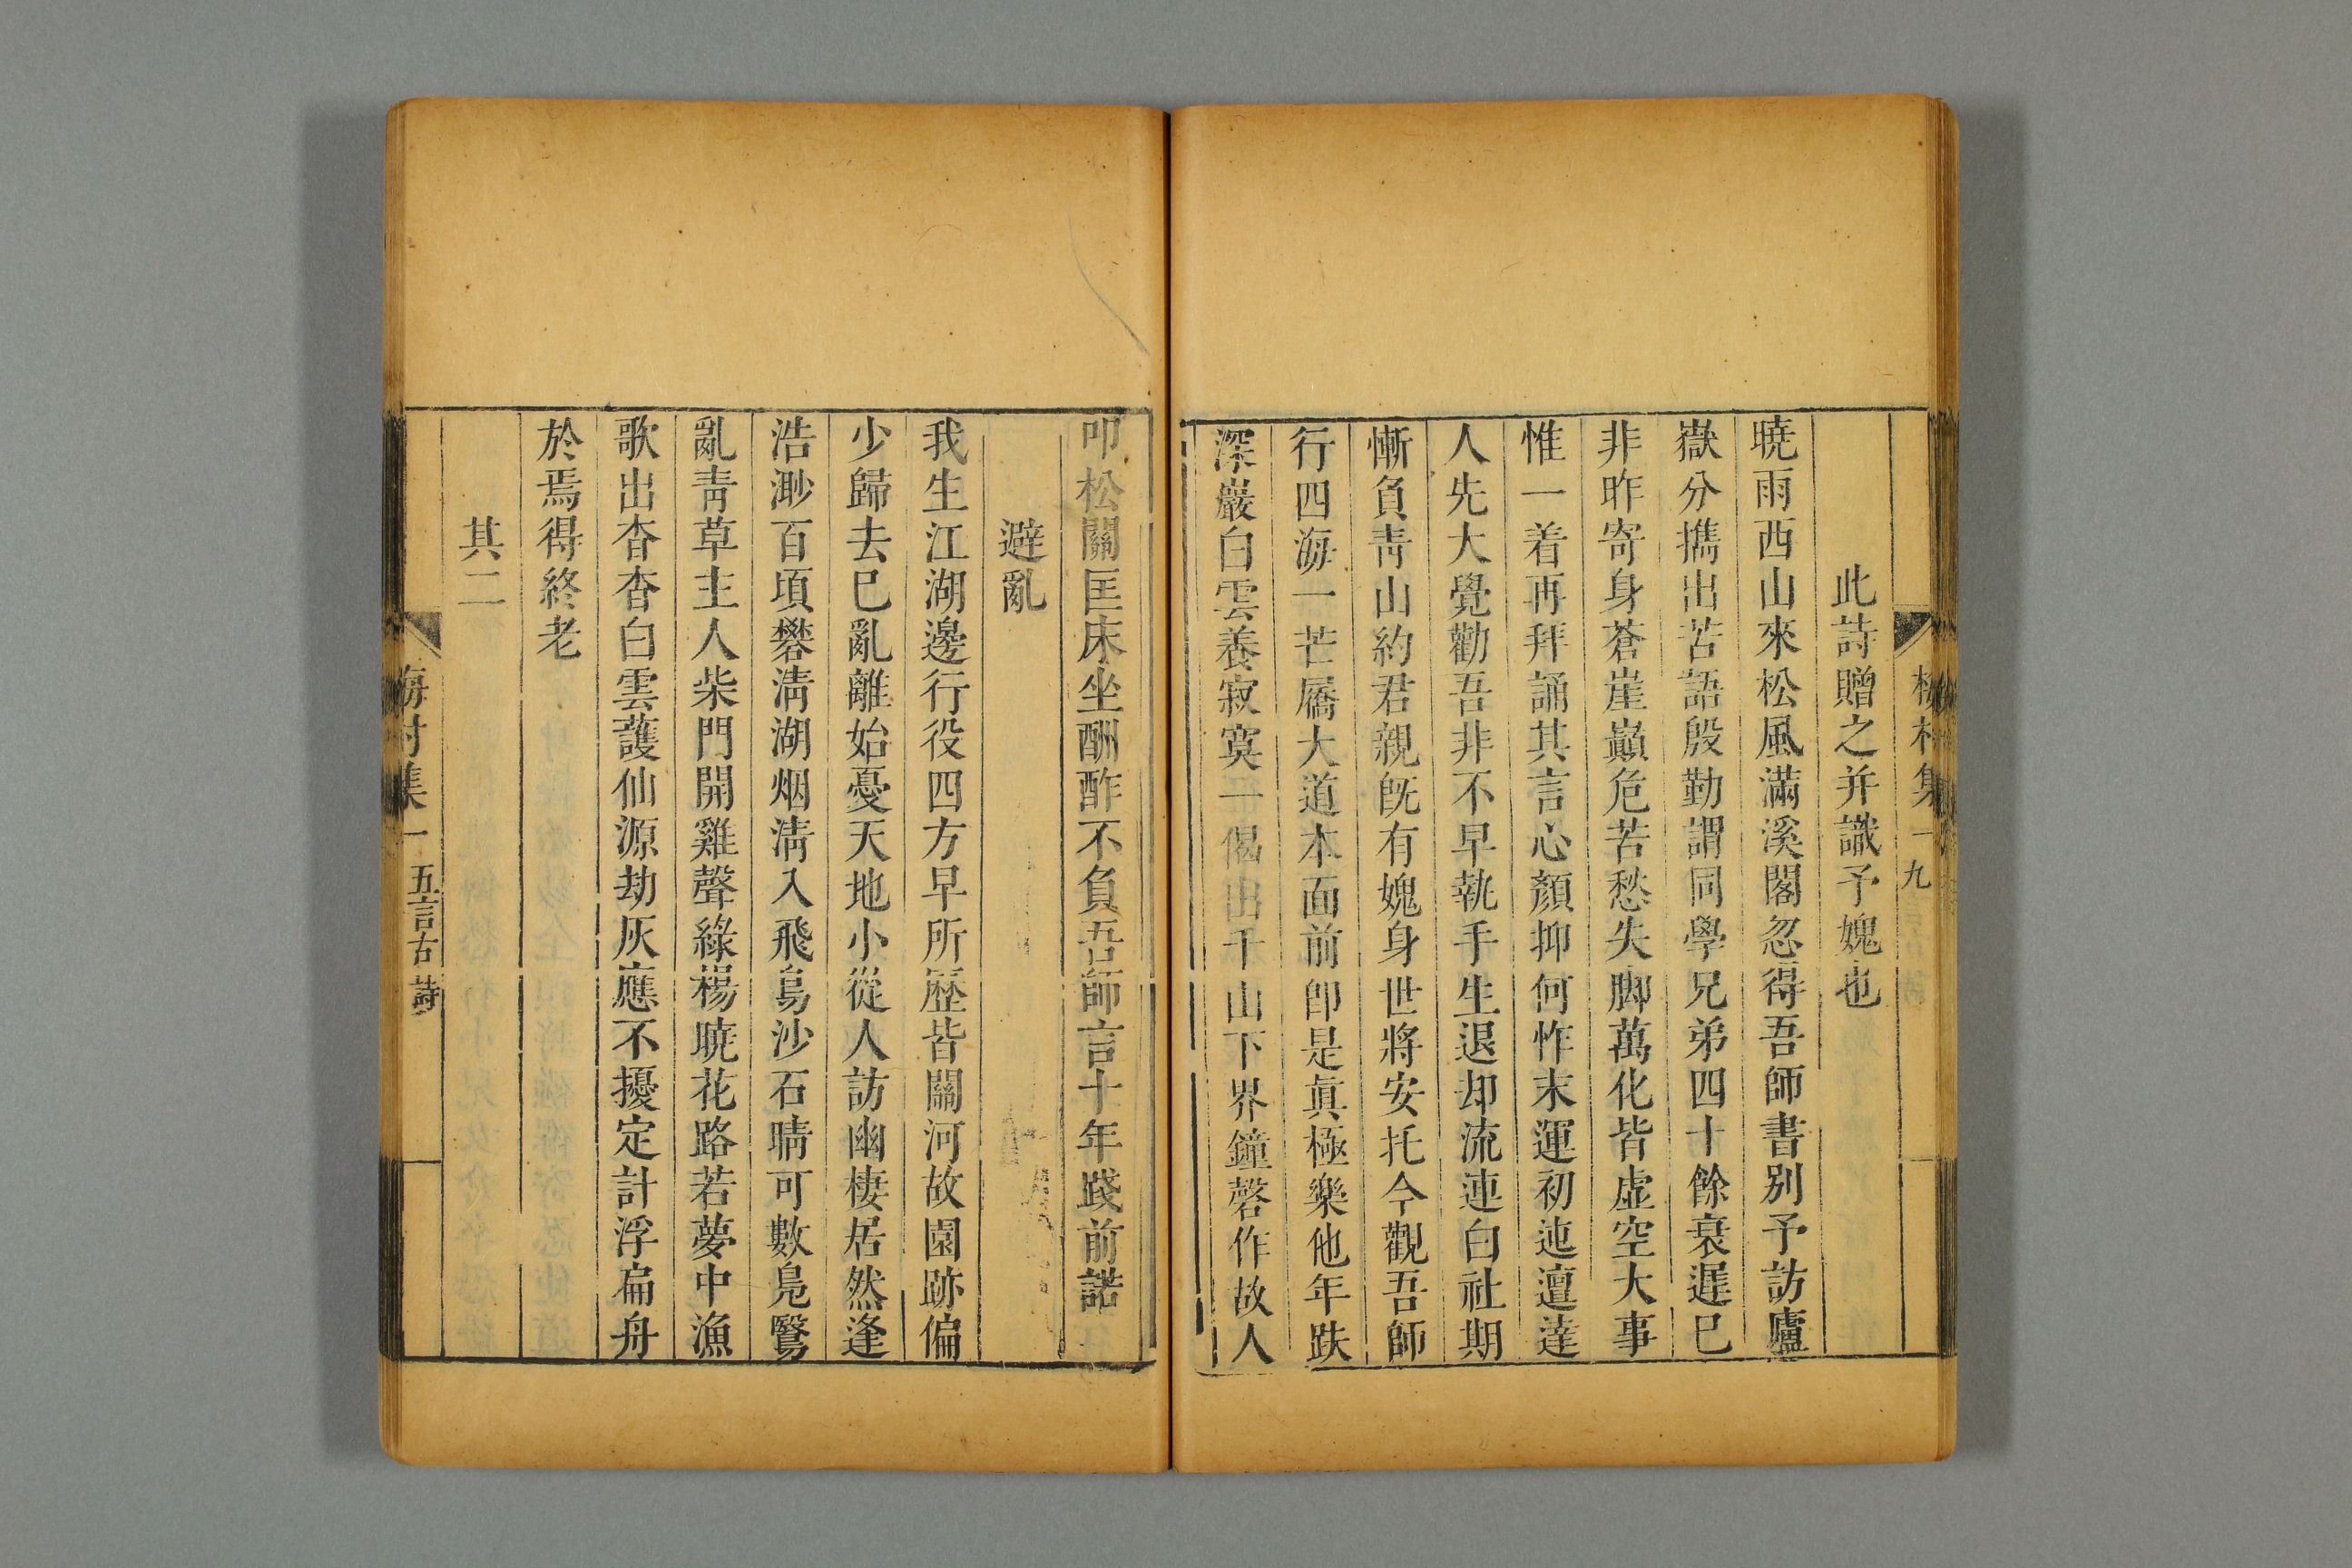 梅村集
一
九
此詩贈之并識予媿也
曉雨西山來松風滿溪閣忽得吾師書別予訪廬
嶽分携出苦語殷勤謂同學兄弟四十餘衰遲已
非昨寄身蒼崖巔危苦愁失脚萬化皆虛空大事
惟一着再拜誦其言心顏抑何怍末運初迍邅達
人先大覺勸吾非不早執手生退却流連白社期
慚負靑山約君親旣有媿身世將安托今觀吾師
行四海一芒屩大道本面前卽是眞極樂他年趺
深巖白雲養寂寞一偈出千山下界鐘磬作故人
叩松關匡床坐酬酢不負吾師言十年踐前諾
避亂
我生江湖邊行役四方早所歷皆關河故園跡偏
少歸去已亂離始憂天地小從人訪幽棲居然逢
浩渺百頃礬淸湖烟淸入飛鳥沙石晴可數鳧鷖
亂靑草主人柴門開雞聲綠楊曉花路若夢中漁
歌出杳杳白雲護仙源劫灰應不擾定計浮扁舟
於焉得終老
其二
梅村集一
五言古詩